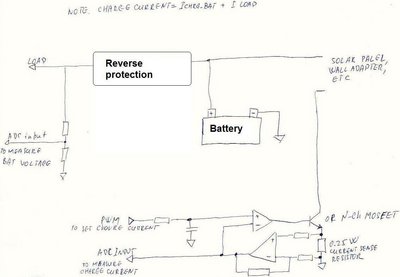 NOTE. CHARGE CURRENT = ICHRG.BAT + I LOAD
LOAD
Reverse
protection
SOLAR PALER,
WALL ADAPTER,
ETC
ADC input
TO MEASURE
BAT VOLTAGE
+
-
Battery
PWM
TO SET CHARGE CURRENT
+
-
OR N-Ch MOSFET
0.25 W
CURRENT SENSE
RESISTOR
ADC INPUT
TO MEASURE
CHARGE CURRENT
+
-